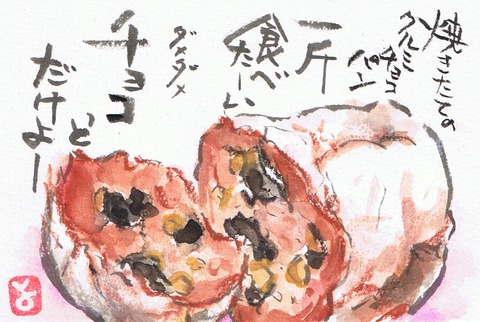 焼きたての
クルミチョコ
パン
一斤
食べ
たーい
ダメダメ
チョコ
っと
だけよー
と